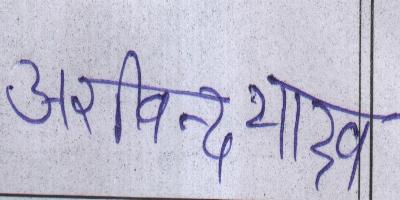 अरविन्द यादव